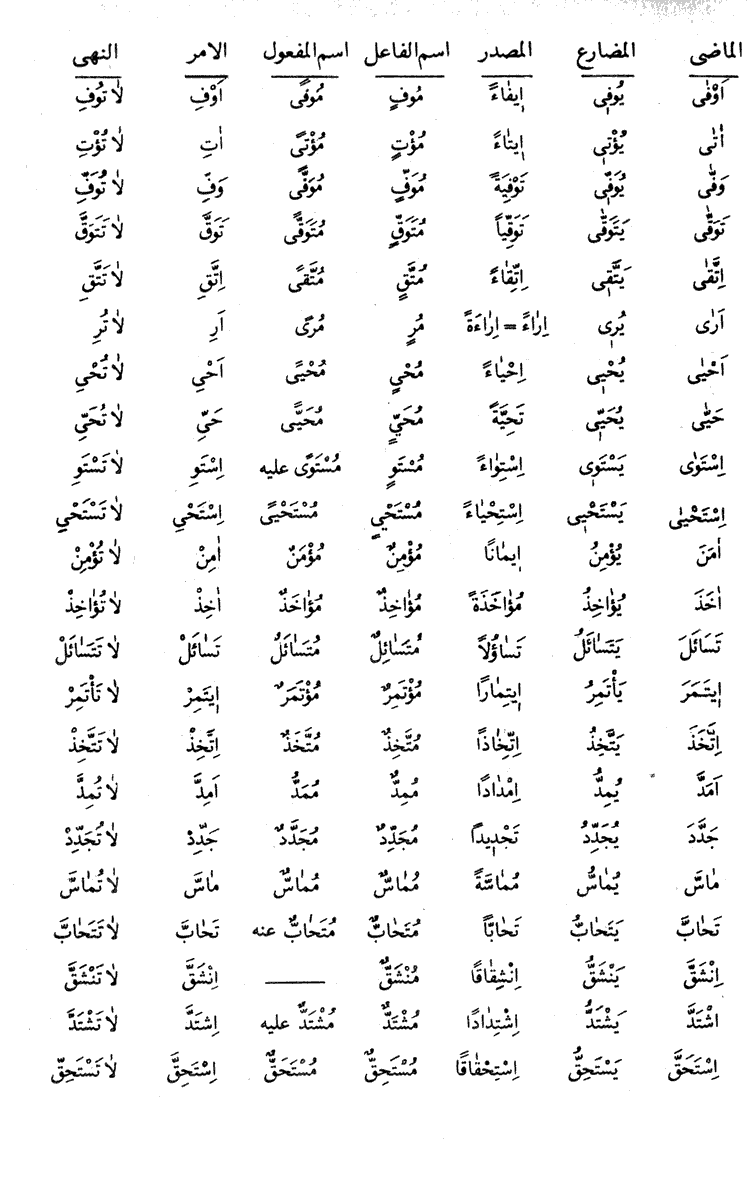 الماضى المضارع المصدر اسم الفاعل اسم المفعول الامر النهى
اَوْفٰى يُوفِى إِيفٰاءً مُوفٍ مُوفًى اَوْفِ لٰا تُوفِ
اٰتٰى يُؤْتِى إِيتٰاءً مُؤْتٍ مُؤْتًى اٰتِ لٰا تُؤْتِ
وَفّٰى يُوَفِّى تَوْفِيَةً مُوَفٍّ مُوَفًّى وَفِّ لٰا تُوَفِّ
تَوَقّٰى يَتَوَقّٰى تَوَقِّياً مُتَوَقٍّ مُتَوَقًّى تَوَقَّ لٰا تَتَوَقَّ
اِتَّقٰى يَتَّقِى اِتِّقٰاءً مُتَّقٍ مُتَّقًى اِتَّقِ لٰا تَتَّقِ
اَرٰى يُرِى اِرٰاءً = اِرٰاءَةً مُرٍ مُرًى اَرِ لٰا تُرِ
اَحْيٰى يُحْيِى اِحْيٰاءً مُحْيٍ مُحْيًى اَحْيِ لٰا تُحْيِ
حَيّٰى يُحَيِّى تَحِيَّةً مُحَيٍّ مُحَيًّى حَيِّ لٰا تُحَيِّ
اِسْتَوٰى يَسْتَوِى اِسْتِوٰاءً مُسْتَوٍ مُسْتَوًى عليه اِسْتَوِ لٰا تَسْتَوِ
اِسْتَحْيٰى يَسْتَحْيِى اِسْتِحْيٰاءً مُسْتَحْيٍ مُسْتَحْيًى اِسْتَحْيِ لٰا تَسْتَحْيِ
اٰمَنَ يُؤْمِنُ إِيمٰانًا مُؤْمِنٌ مُؤْمَنٌ اٰمِنْ لٰا تُؤْمِنْ
اٰخَذَ يُؤٰاخِذُ مُؤٰاخَذَةً مُؤٰاخِذٌ مُؤٰاخَذٌ اٰخِذْ لٰا تُؤٰاخِذْ
تَسَائَلَ يَتَسٰائَلُ تَسٰاؤُلاً مُتَسٰائِلٌ مُتَسٰائَلٌ تَسٰائَلْ لٰا تَتَسٰائَلْ
إِيتَمَرَ يَأْتَمِرُ إِيتِمٰارًا مُؤْتَمِرٌ مُؤْتَمَرٌ إِيتَمِرْ لٰا تَأْتَمِرْ
اِتَّخَذَ يَتَّخِذُ اِتِّخٰاذًا مُتَّخِذٌ مُتَّخَذٌ اِتَّخِذْ لٰا تَتَّخِذْ
اَمَدَّ يُمِدُّ اِمْدٰادًا مُمِدٌّ مُمَدٌّ اَمِدَّ لٰا تُمِدَّ
جَدَّدَ يُجَدِّدُ تَجْدِيداً مُجَدِّدٌ مُجَدَّدٌ جَدِّدْ لٰا تُجَدِّدْ
مٰاسَّ يُمٰاسُّ مُمٰاسَّةً مُمٰاسٌّ مُمٰاسٌّ مٰاسَّ لٰا تُمٰاسَّ
تَحٰابَّ يَتَحٰابُّ تَحٰابّاً مُتَحٰابٌّ مُتَحٰابٌّ عنه تَحٰابَّ لٰا تَتَحٰابَّ
اِنْشَقَّ يَنْشَقُّ اِنْشِقٰاقًا مُنْشَقٌّ ـــــ اِنْشَقَّ لٰا تَنْشَقَّ
اشْتَدَّ يَشْتَدُّ اِشْتِدٰادًا مُشْتَدٌّ مُشْتَدٌّ عليه اِشتَدَّ لٰا تَشْتَدَّ
اِسْتَحَقَّ يَسْتَحِقُّ اِسْتِحْقٰاقًا مُسْتَحِقٌّ مُسْتَحَقٌّ اِسْتَحِقَّ لٰا تَسْتَحِقّ